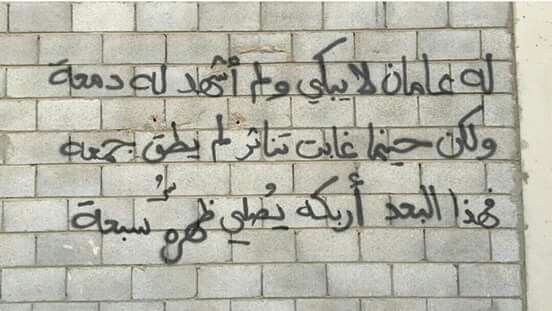 له عامان لا يبكي ولم أشهد له دمعة
ولكن حينما غابت تناثر لم يطق جمعه
فهذا البعد أربكه يُصلي ظهرهُ سبعة